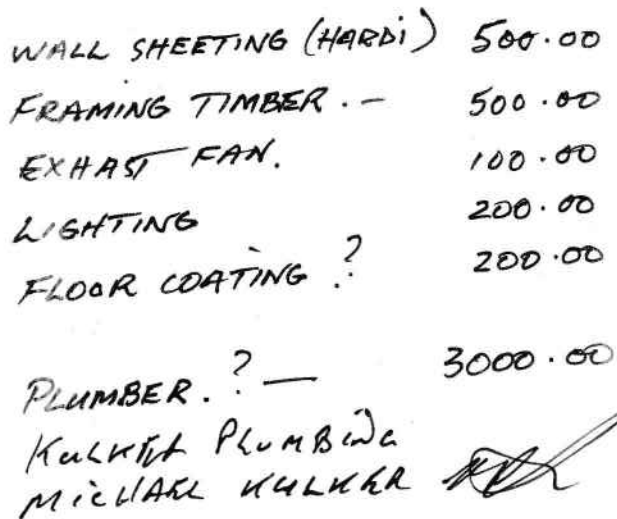 WALL SHEETING (HARDI) 500.00
FRAMING TIMBER. - 500.00
EXHAST FAN. 100.00
LIGHTING 200.00
FLOOR COATING ? 200.00
PLUMBER. ? — 3000.00
PLUMBING
MICHAEL KULKER